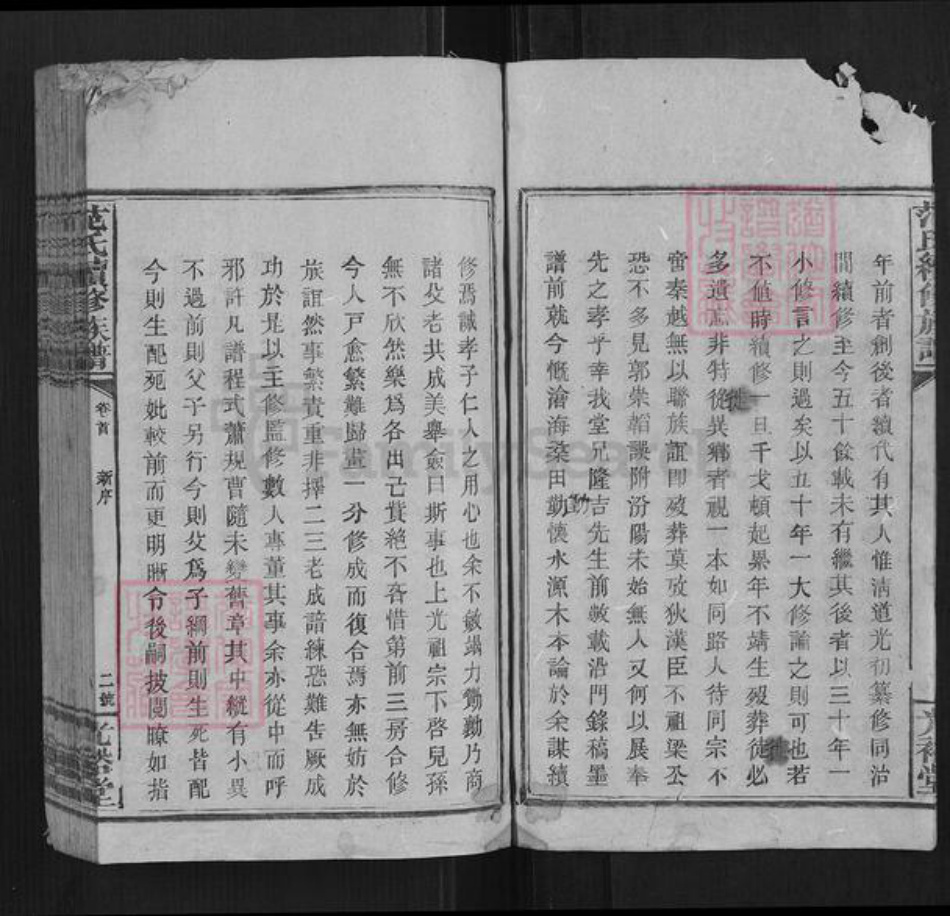 年前者創後者續代有其人惟淸道光初纂修同治
間續修至今五十餘載未有繼其後者以三十年一
小修言之則過矣以五十年一大修論之則可也若
不値時續修一旦千戈頓起累年不靖生殁葬徙必
多遺忘非特徙異鄉者視一本如同路人待同宗不
啻秦越無以聯族誼即殁葬莫攷狄漢臣不祖梁公
恐不多見郭崇韜謬附汾陽未始無人又何以展奉
先之孝乎幸我堂兄隆吉先生前數載沿門錄稿墨
譜前就今慨滄海桑田勤懷水源木本論於余謀續
勤
修焉誠孝子仁人之用心也余不敏竭力勷勷乃商
諸父老共成美舉僉曰斯事也上光祖宗下啓兒孫
無不欣然樂爲各出己貲絕不吝惜第前三房合修
今人戸愈繁難歸畫一分修成而復合焉亦無妨於
族誼然事繁責重非擇二三老成諳練恐難告厥成
功於是以主修監修數人專董其事余亦從中而呼
邪許凡譜程式蕭規曹隨未變舊章其中縱有小異
不過前則父子另行今則父爲子綱前則生死皆配
今則生配死妣較前而更明晰令後嗣披閱瞭如指
范氏續修族譜
卷首
新序
二號
FamilySearch